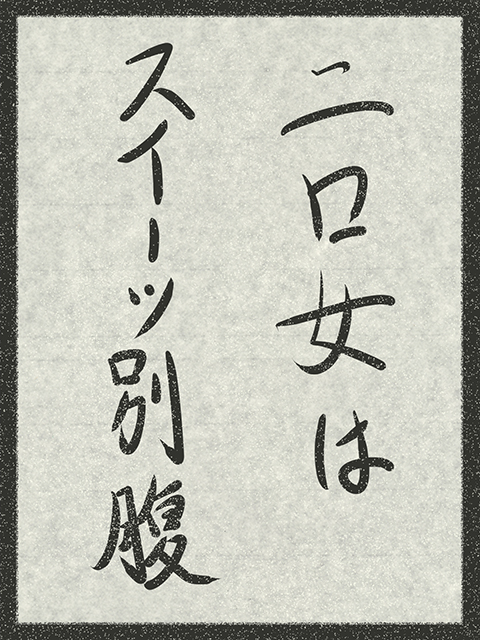 二口女は
スイーツ別腹